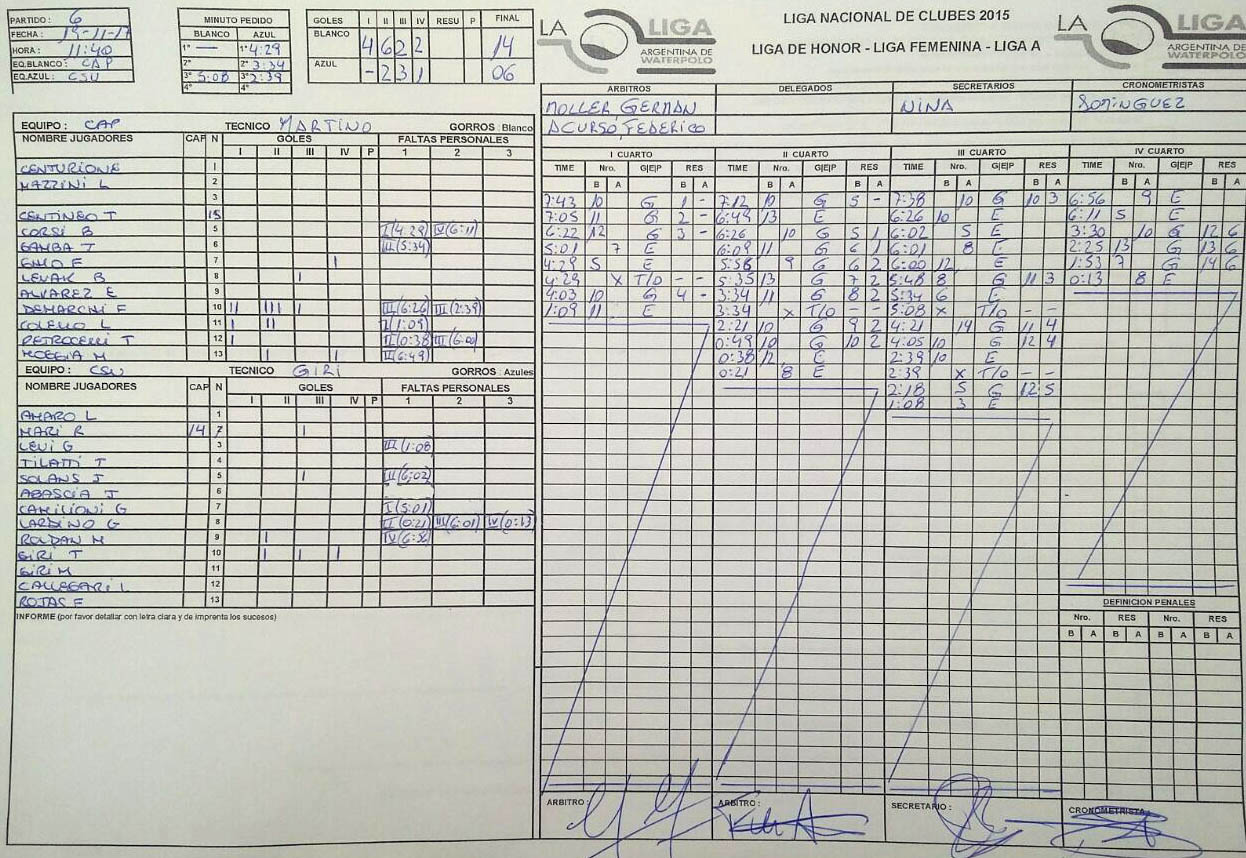 PARTIDO : 6
FECHA : 19-11-17
HORA : 11:40
EQ.BLANCO : CAP
EQ.AZUL : CSU
MINUTO PEDIDO
BLANCO AZUL
1° — 1° 4:29
2° 2° 3:34
3° 5:08 3° 2:39
4° 4°
GOLES I II III IV RESU P FINAL
BLANCO 4 6 2 2 14
AZUL - 2 3 1 06
LA LIGA ARGENTINA DE WATERPOLO
LIGA NACIONAL DE CLUBES 2015
LIGA DE HONOR - LIGA FEMENINA - LIGA A
LA LIGA ARGENTINA DE WATERPOLO
ARBITROS DELEGADOS SECRETARIOS CRONOMETRISTAS
MOLLER GERMAN NINA DOMINGUEZ
ACURSO, FEDERICO
EQUIPO : CAP TECNICO MARTINO GORROS : Blanco
NOMBRE JUGADORES CAP N GOLES FALTAS PERSONALES
I II III IV P 1 2 3
CENTURIONE 1
MAZZINI L 2
3
CENTINEO T 15
CORSI B 5 I(4:29) IV(6:11)
GAMBA T 6 III(5:34)
7 I
LEVAK B 8 I
ALVAREZ E 9
DEMARCHI F 10 II III I III(6:26) III(2:39)
COLELLO L 11 I II I(1:09)
PETROCELLI T 12 I II(0:38) III(6:00)
MOGGIA M 13 I I II(6:49)
EQUIPO : CSU TECNICO GIRI GORROS : Azules
NOMBRE JUGADORES CAP N GOLES FALTAS PERSONALES
I II III IV P 1 2 3
AMARO L 1
MARI R 14 2 I
LEVI G 3 III(1:08)
TILATTI T 4
SOLANS J 5 I III(6:02)
ABASCIA J 6
CAMILIONI G 7 I(5:01)
LARDINO G 8 II(0:21) III(6:01) IV(0:13)
ROLDAN M 9 I IV(6:56)
GIRI T 10 I I I
GIRI M 11
CALLEGARI L 12
ROJAS F 13
INFORME (por favor detallar con letra clara y de imprenta los sucesos)
I CUARTO
TIME Nro. G|E|P RES
B A B A
7:43 10 G 1 -
7:05 11 G 2 -
6:22 12 G 3 -
5:01 7 E
4:29 5 E
4:29 X T/O - -
4:03 10 G 4 -
1:09 11 E
II CUARTO
TIME Nro. G|E|P RES
B A B A
7:12 10 G 5 -
6:49 13 E
6:26 10 G 5 1
6:09 11 G 6 1
5:58 9 G 6 2
5:35 13 G 7 2
3:34 11 G 8 2
3:34 X T/O - -
2:21 10 G 9 2
0:49 10 G 10 2
0:38 12 E
0:21 8 E
III CUARTO
TIME Nro. G|E|P RES
B A B A
7:38 10 G 10 3
6:26 10 E
6:02 5 E
6:01 8 E
6:00 12 E
5:48 8 G 11 3
5:34 6 E
5:08 X T/O - -
4:21 14 G 11 4
4:05 10 G 12 4
2:39 10 E
2:39 X T/O - -
2:18 5 G 12 5
1:08 3 E
IV CUARTO
TIME Nro. G|E|P RES
B A B A
6:56 9 E
6:11 5 E
3:30 10 G 12 6
2:25 13 G 13 6
1:53 7 G 14 6
0:13 8 E
DEFINICION PENALES
Nro. RES Nro. RES
B A B A B A B A
ARBITRO : ARBITRO : SECRETARIO : CRONOMETRISTA :